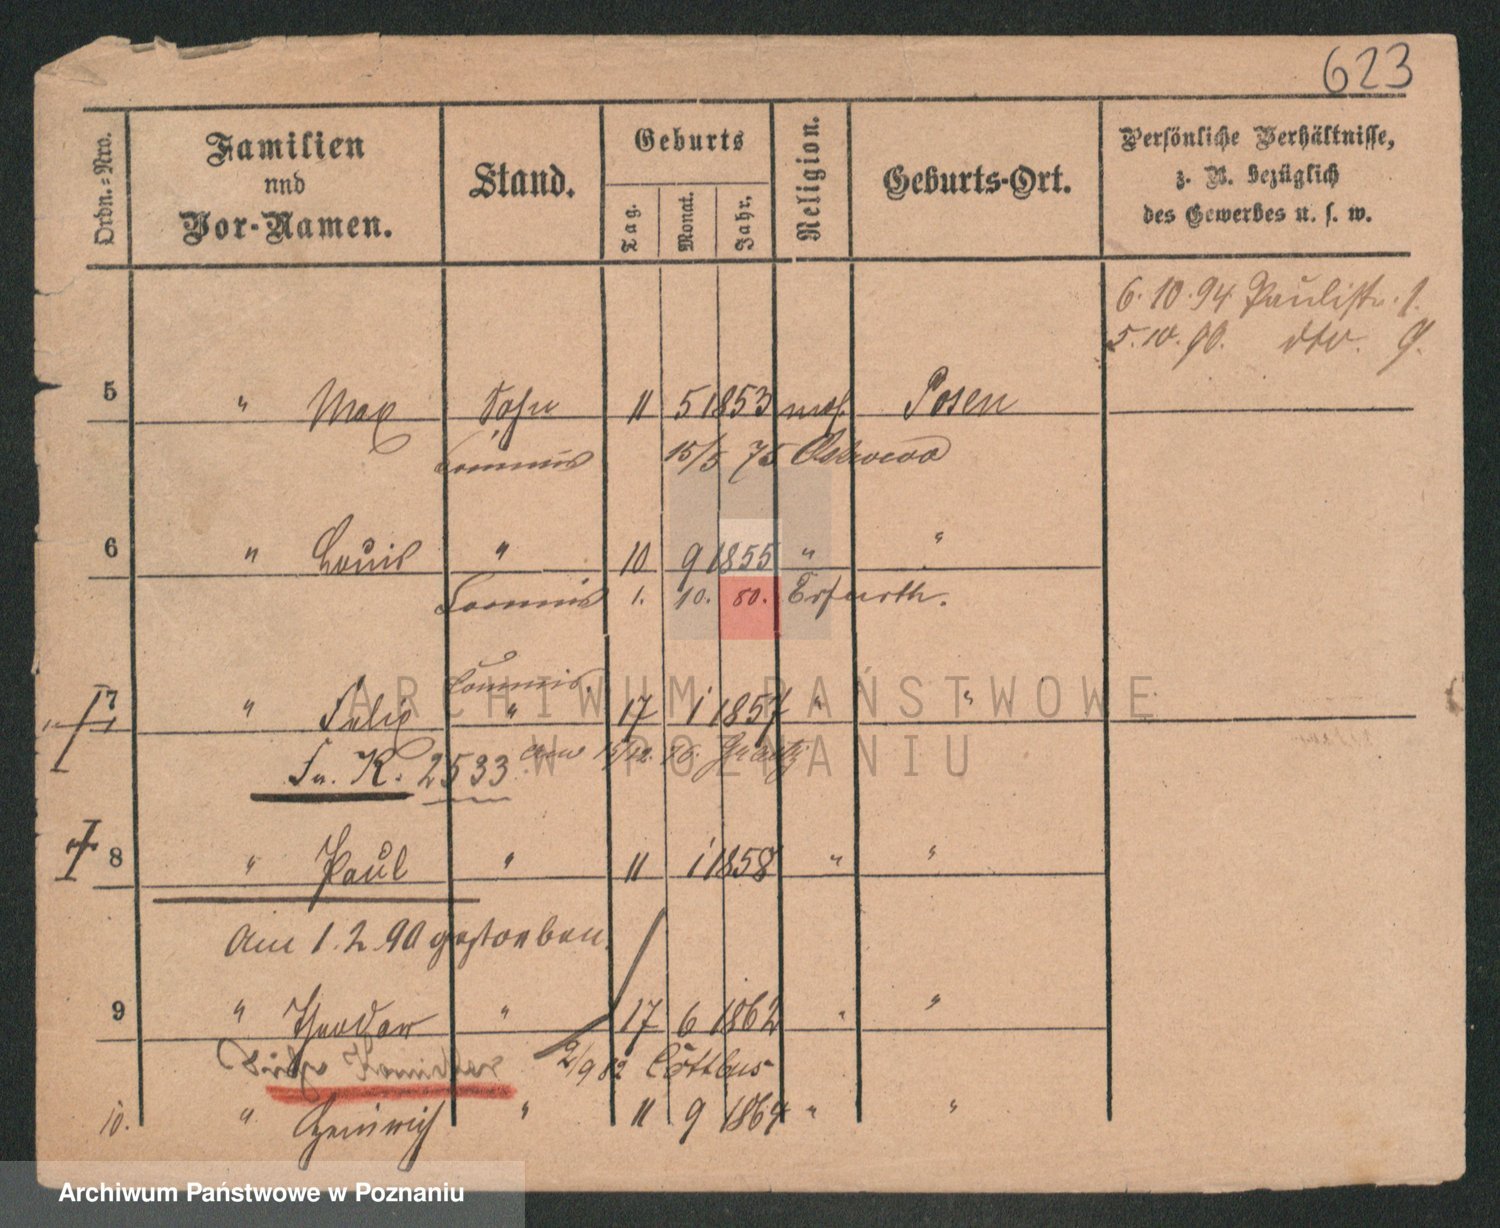 623
Ordn.=Nro.
Familien
und
Vor-Namen.
Stand.
Geburts
Tag.
Monat.
Jahr.
Religion.
Geburts-Ort.
Persönliche Verhältnisse,
z. B. bezüglich
des Gewerbes u. s. w.
6.10.94 Paulistr. 1.
5.10.90. dto. 9.
5 " Max Sohn 11 5 1853 mos. Posen
Commis 15/5 75 Ostrowo
6 " Louis " 10 9 1855 " "
Commis 1. 10. 80. Erfurth.
Commis
7 " Felix " 17 1 1857 " "
Fa. K. 2533 15/12. 76. Graetz
8 " Paul " 11 1 1858 " "
Am 1.2.90 gestorben.
9 " Theodor " 17 6 1862 " "
Siehe 2/9 82 Cottbus
10. " Heinrich " 11 9 1864 " "
ARCHIWUM PAŃSTWOWE
W POZNANIU
Archiwum Państwowe w Poznaniu